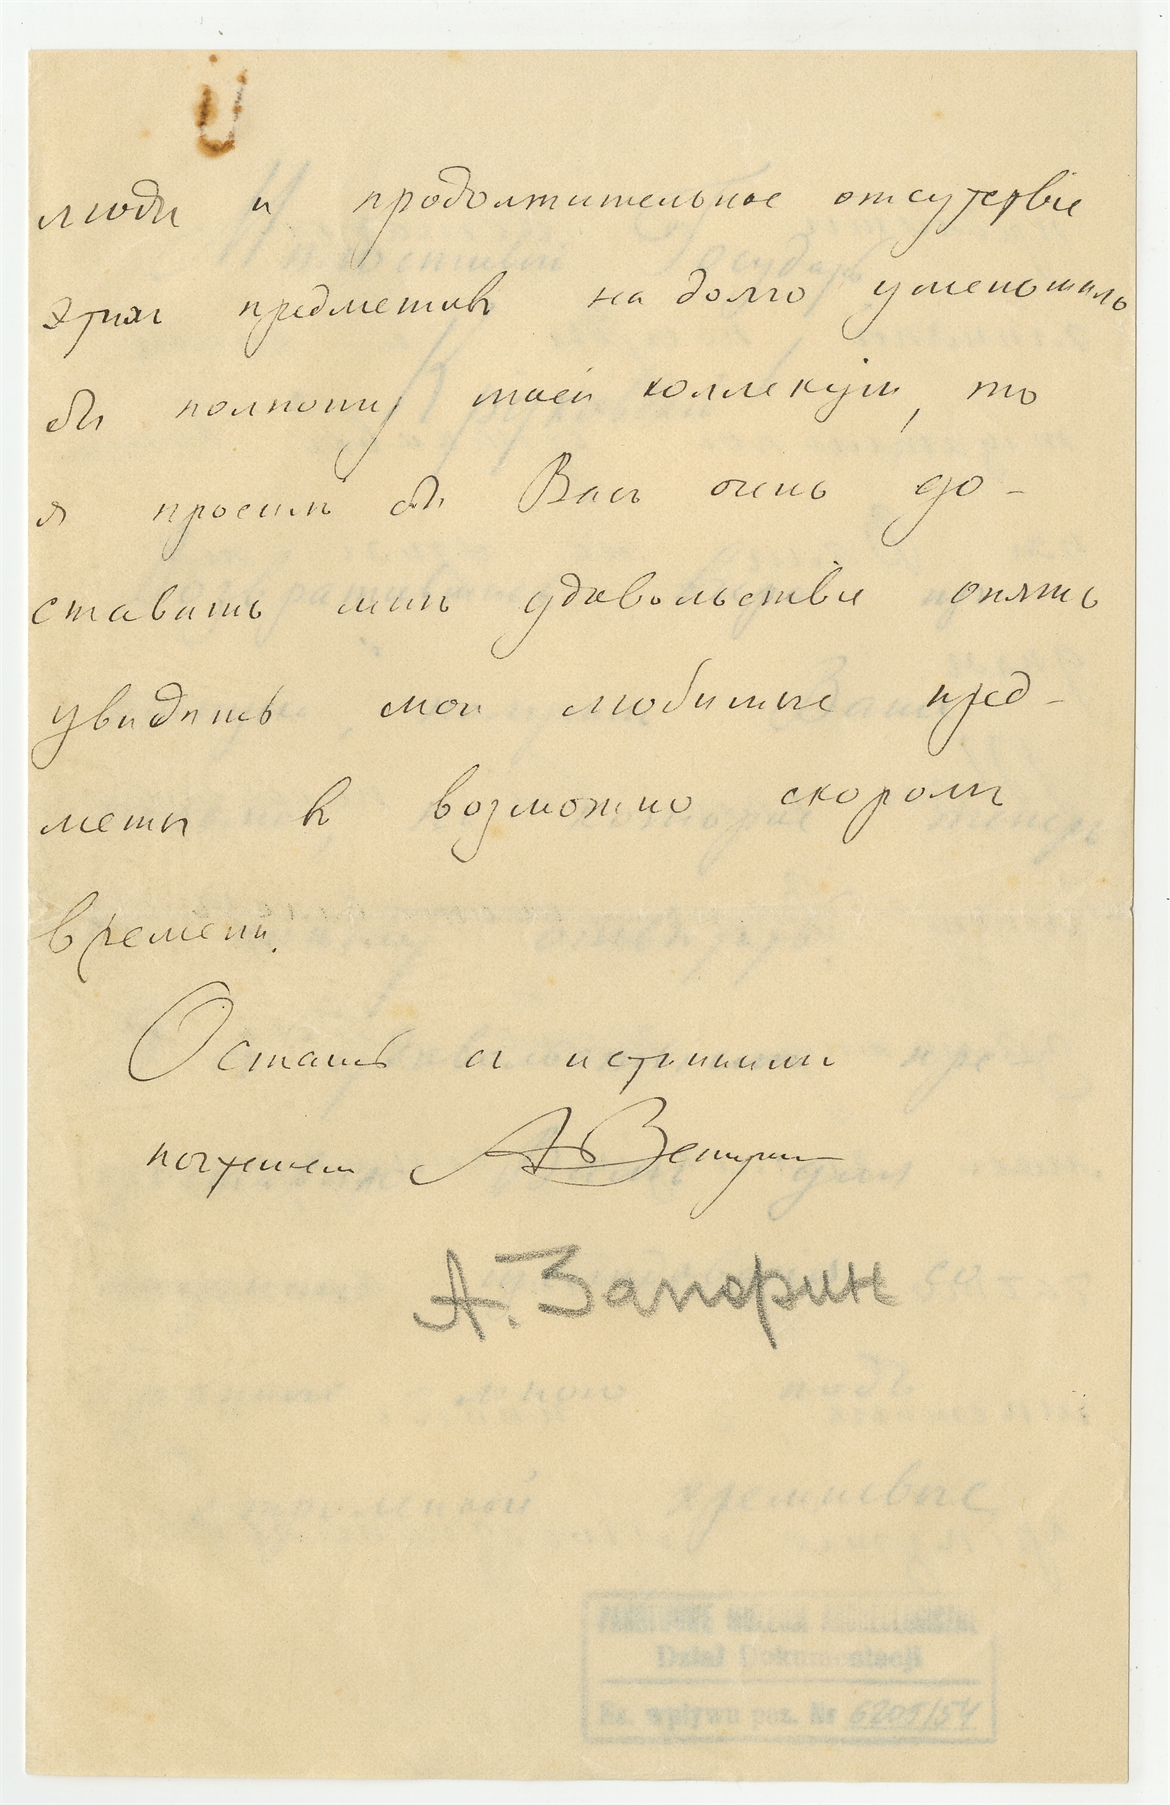 люди и продолжительное отсутствіе
этих предметовъ на долго уменьшиль
бы полноту моей коллекціи, то
я просилъ бы Васъ очень до-
ставить мнѣ удовольствіе опять
увидѣть мои любимые пред-
меты въ возможно скоромъ
времени.
Остаюсь съ истиннымъ
почтеніем А
А. Запорин
Dział Dokumentacji
Ks. wpływu poz. Nr 6205/54